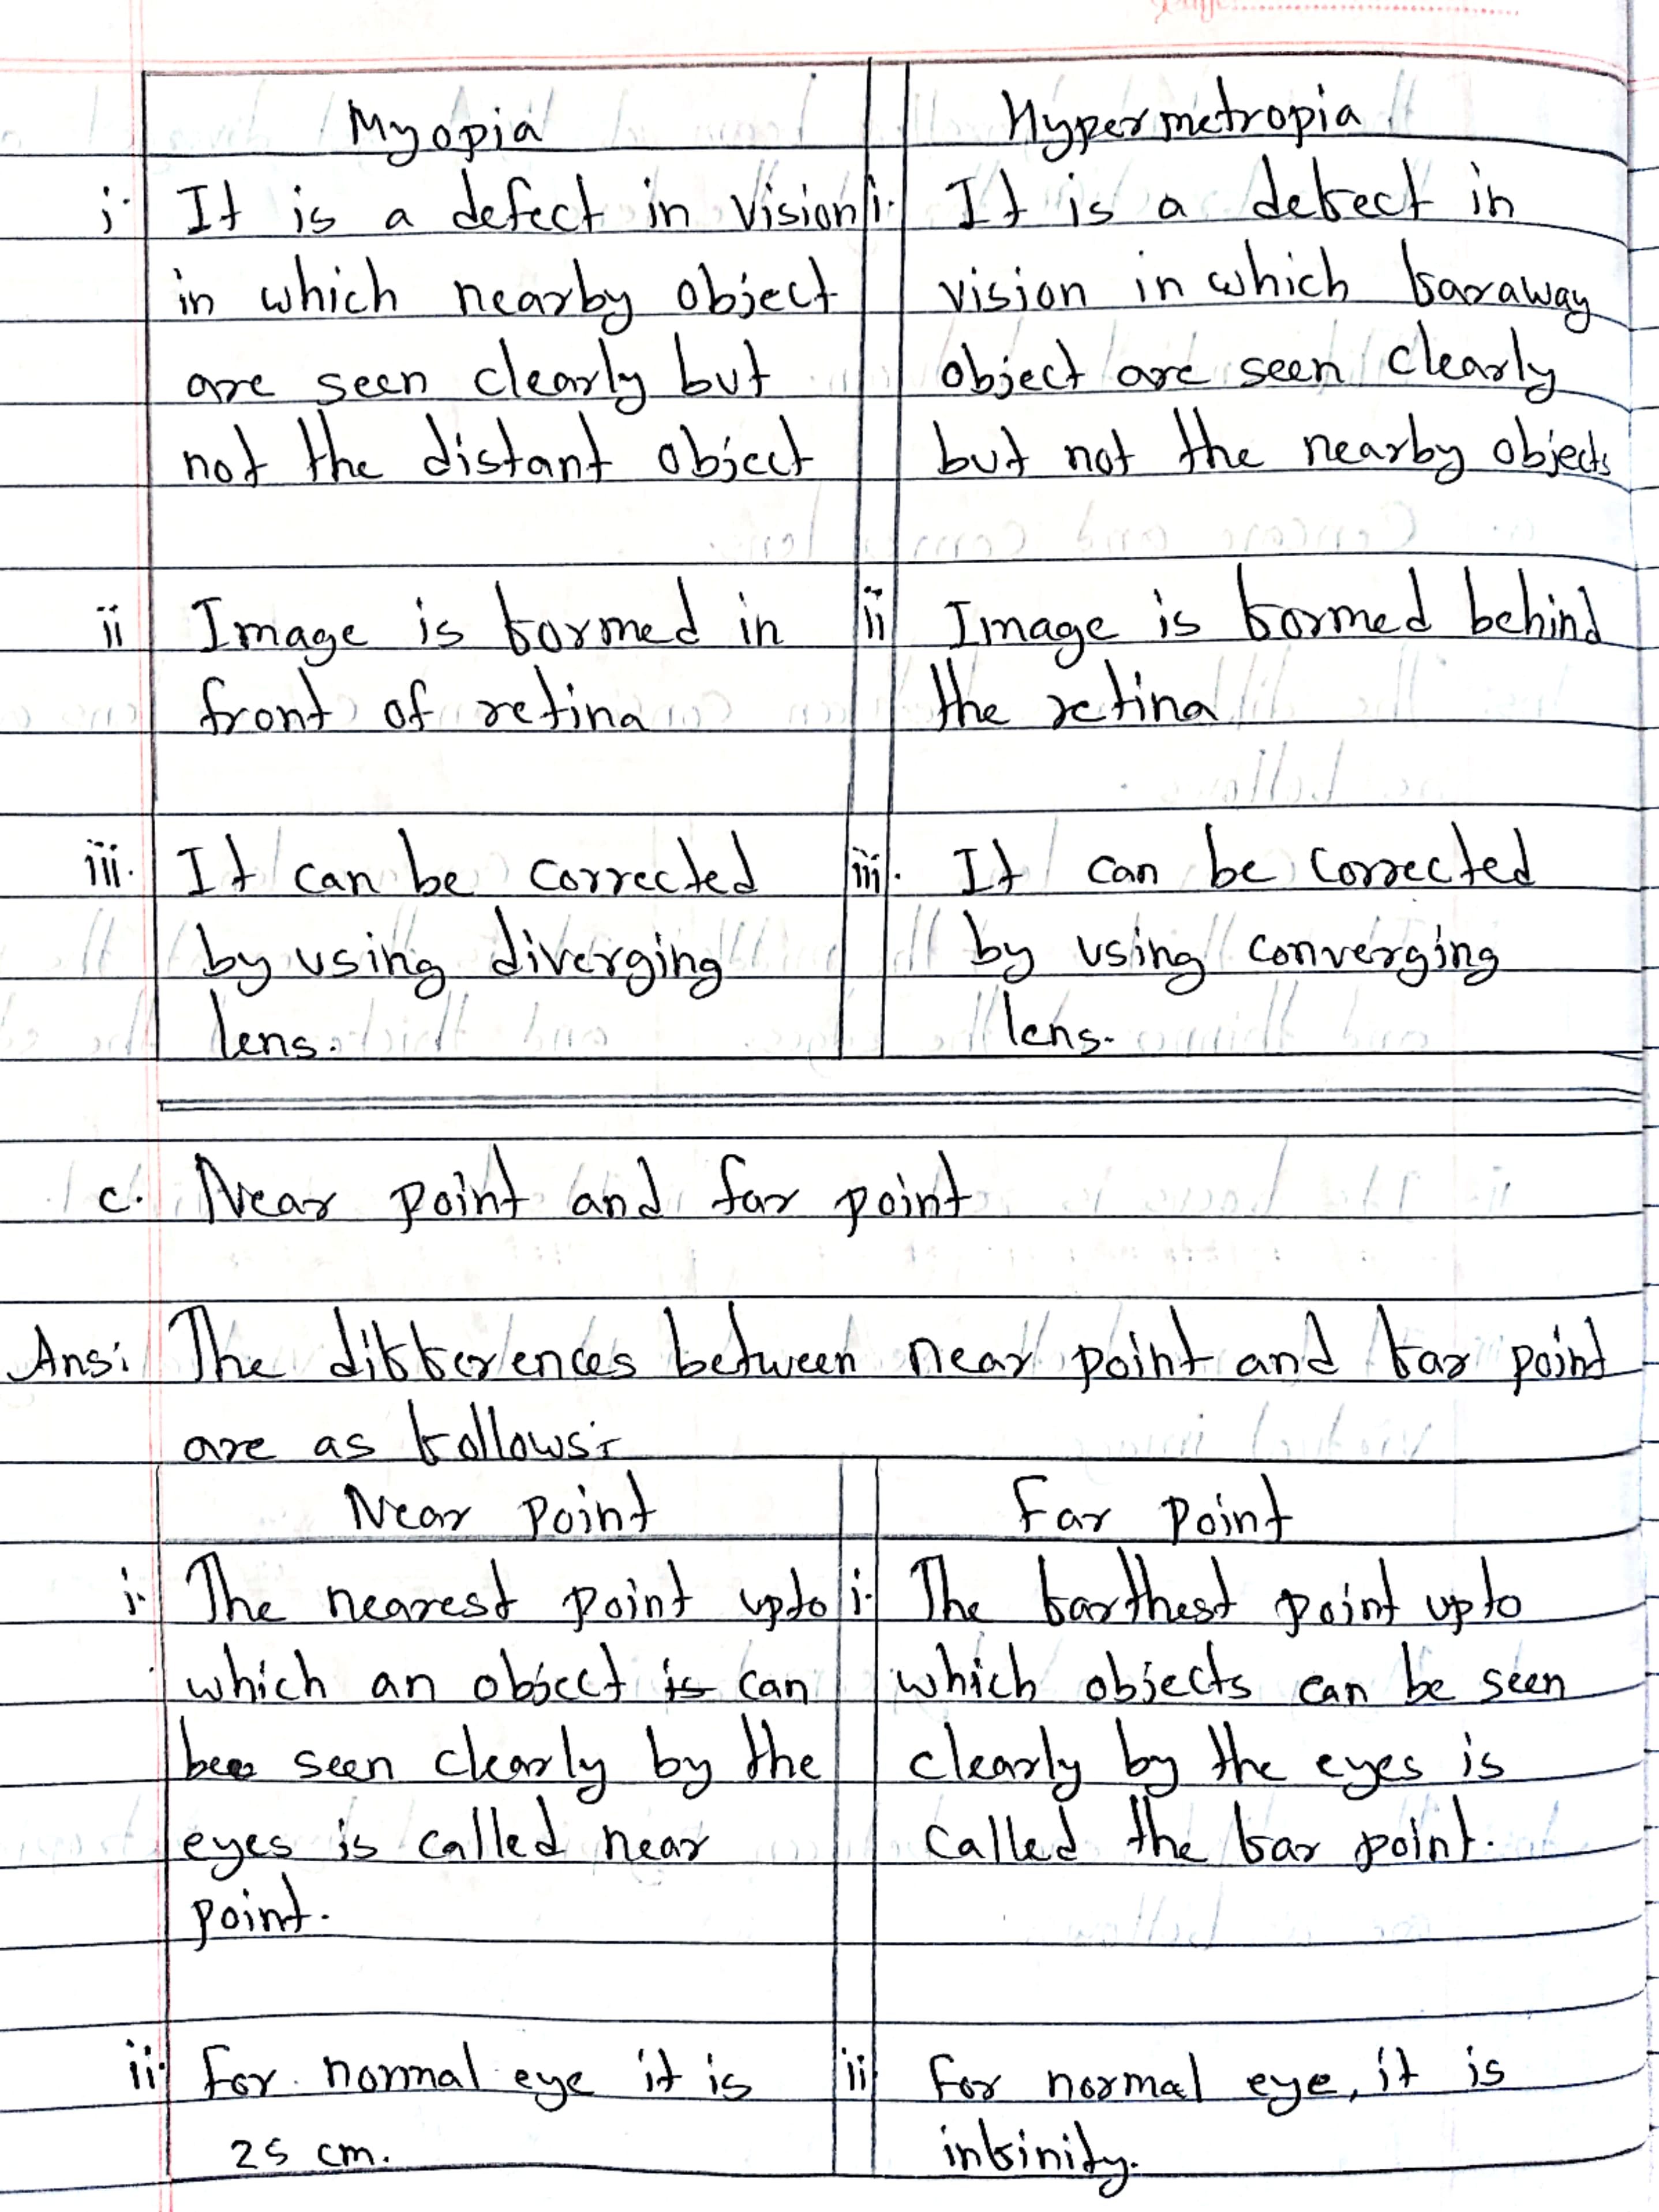 Myopia
Hypermetropia
i. It is a defect in vision
in which nearby object
are seen clearly but
not the distant object
i. It is a defect in
vision in which faraway
object are seen clearly
but not the nearby objects
ii Image is formed in
front of retina
ii Image is formed behind
the retina
iii. It can be corrected
by using diverging
lens.
iii. It can be corrected
by using converging
lens.
c. Near point and far point
Ans: The differences between near point and far point
are as follows:-
Near Point
Far Point
i. The nearest point upto
which an object is can
bee seen clearly by the
eyes is called near
point.
i. The farthest point upto
which objects can be seen
clearly by the eyes is
called the far point.
ii. For normal eye it is
25 cm.
ii. For normal eye, it is
infinity.